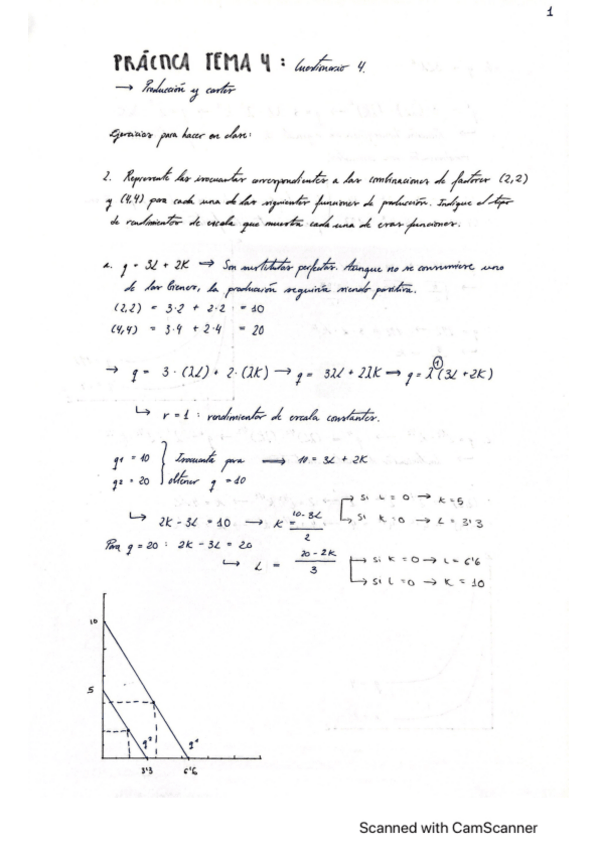 1
PRÁCTICA TEMA 4 : Cuestionario 4.
→ Producción y costes
Ejercicios para hacer en clase:
2. Represente las isocuantas correspondientes a las combinaciones de factores (2,2)
y (4,4) para cada una de las siguientes funciones de producción. Indique el tipo
de rendimientos de escala que muestra cada una de esas funciones.
a. q = 3L + 2K → Son sustitutos perfectos. Aunque no se consumiese uno
de los bienes, la producción seguiría siendo positiva.
(2,2) = 3·2 + 2·2 = 10
(4,4) = 3·4 + 2·4 = 20
→ q = 3·(λL) + 2·(λK) → q = 3λL + 2λK → q = λ¹(3L + 2K)
↳ r = 1 : rendimientos de escala constantes.
q1 = 10 } Isocuanta para → 10 = 3L + 2K
q2 = 20 } obtener q = 10
↳ 2K - 3L = 10 → K = 10 - 3L / 2
→ Si L = 0 → K = 5
→ Si K = 0 → L = 3'3
Para q = 20 : 2K - 3L = 20
↳ L = 20 - 2K / 3
→ Si K = 0 → L = 6'6
→ Si L = 0 → K = 10
10
5
q² q¹
3'3 6'6
Scanned with CamScanner